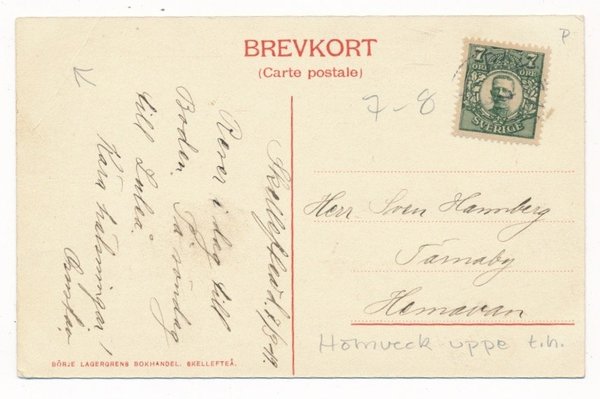 BREVKORT
(Carte postale)
7 ÖRE 7 ÖRE
SVERIGE
7-8
Skellefteå d.
Reser i dag till
Boden. På söndag
till Luleå.
Kära hälsningar!
Herr Sven Hamberg
Tärnaby
Hemavan
Holmveck uppe t.h.
BÖRJE LAGERGRENS BOKHANDEL. SKELLEFTEÅ.